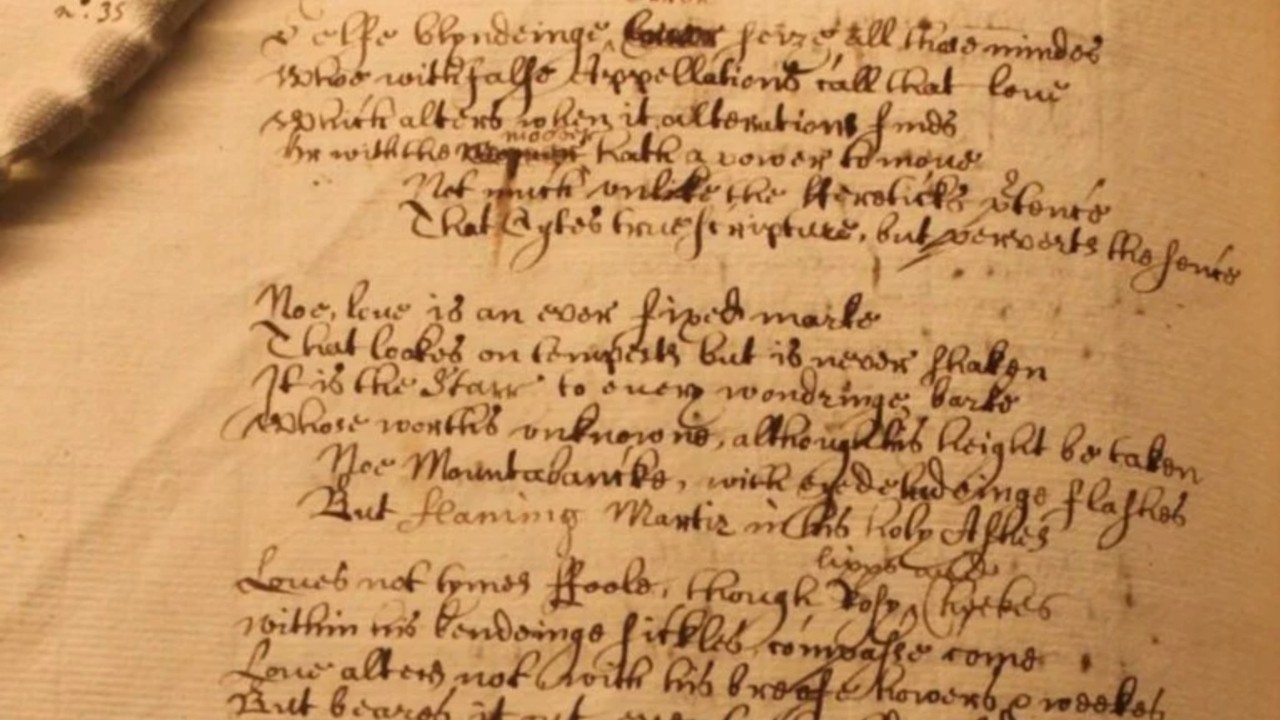 n.° 35
error
selfe blyndeinge seize all those mindes
Whoe with false Appellations call that love
Which alters when it alterations finds
moover
Or with the hath a power to move
Not much unlike the Hereticks ptence
That Cytes true scripture, but perverts the sence
Noe, love is an ever fixed marke
That lookes on tempests but is never shaken
It is the Starr to every wondringe barke
Whose worths unknowne, although his height be taken
Noe Mountabancke, with eyedeludeinge flashes
But flaming Martir in his holy Ashes
lipps and
Loves not tymes ffoole, though Rosy Cheekes
within his bendeinge sickles compasse come
Love alters not with his breefe howers & weekes
But beares it out even